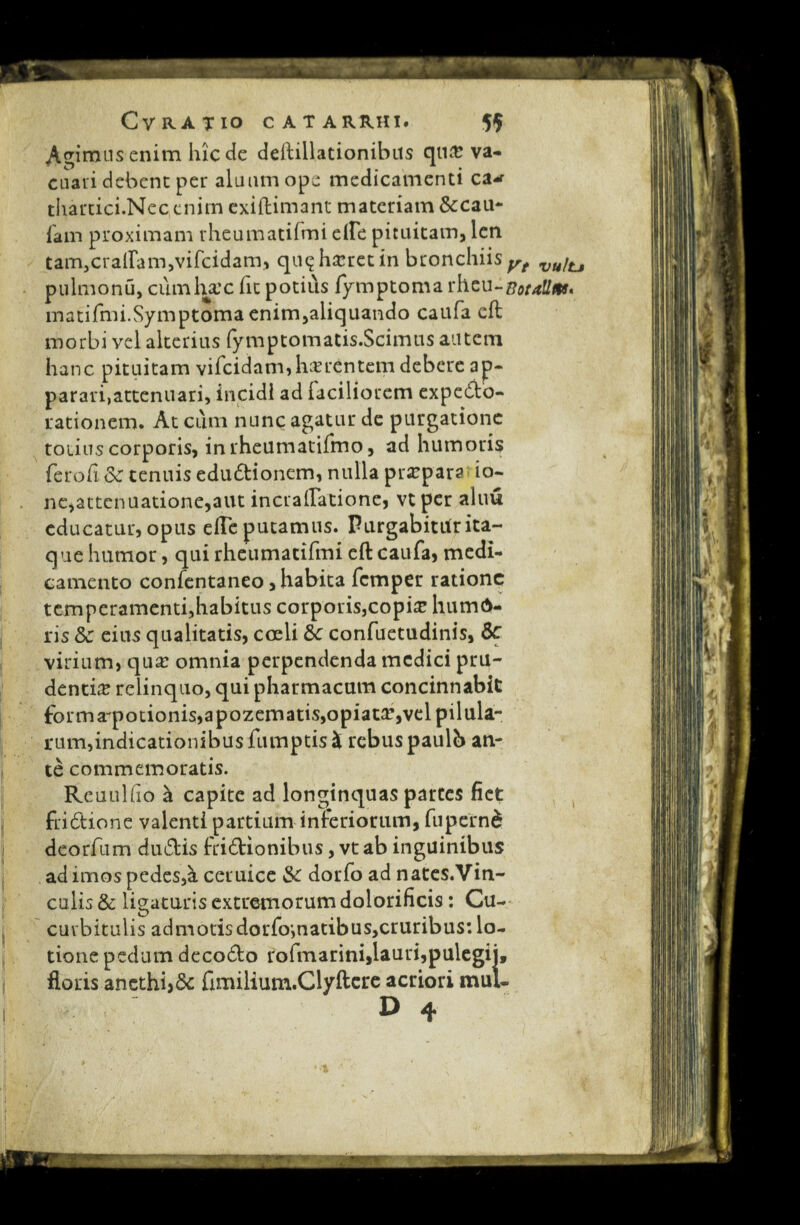 CVRATIO CATARRHI. 55
Agimus enim hîc de deſtillationibus quæ va-
cuari debent per aluum ope medicamenti ca-
thartici.Nec enim exiſtimant materiam &cau-
ſam proximam rheumatiſmi eſſe pituitam, len
tam,craſſam,viſcidam, quę hæret in bronchiis
Vt vult
pulmonū, cùm hæc ſit potiùs ſymptoma rheu-
Botallus.
matiſmi.Symptoma enim,aliquando cauſa eſt
morbi vel alterius ſymptomatis.Scimus autem
hanc pituitam viſcidam, hærentem debere ap-
parari,attenuari, incidi ad faciliorem expecto-
rationem. At cùm nunc agatur de purgatione
totius corporis, in rheumatiſmo, ad humoris
ſeroſi & tenuis eductionem, nulla præparatio-
ne,attenuatione,aut incraſſatione, vt per aluū
educatur, opus eſſe putamus. Purgabitur ita-
que humor, qui rheumatiſmi eſt cauſa, medi-
camento conſentaneo, habita ſemper ratione
temperamenti,habitus corporis,copiæ humo-
ris & eius qualitatis, cœli & conſuetudinis, &
virium, quæ omnia perpendenda medici pru-
dentiæ relinquo, qui pharmacum concinnabit
forma potionis,apozematis,opiatæ,vel pilula-
rum,indicationibus ſumptis à rebus paulò an-
tè commemoratis.
Reuulſio à capite ad longinquas partes fiet
frictione valenti partium inferiorum, ſupernè
deorſum ductis frictionibus, vt ab inguinibus
ad imos pedes,à ceruice & dorſo ad nates.Vin-
culis & ligaturis extremorum dolorificis: Cu-
curbitulis admotis dorſo,natibus,cruribus: lo-
tione pedum decocto roſmarini,lauri,pulegij,
floris anethi,& ſimilium.Clyſtere acriori mul-
D 4